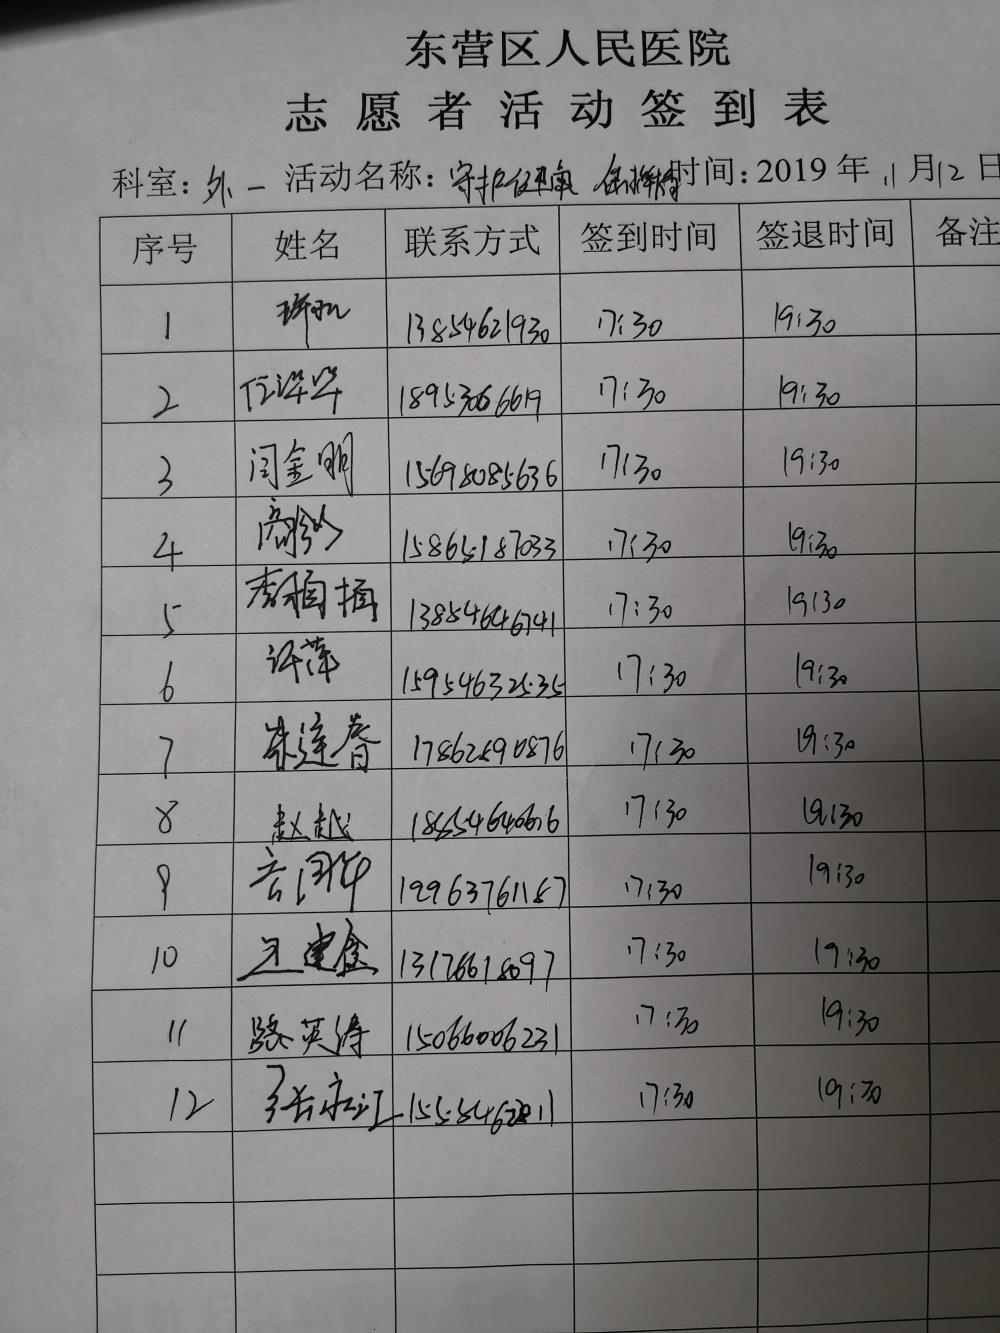 东营区人民医院
志愿者活动签到表
科室: 外一 活动名称: 守护健康 时间: 2019年11月12日
序号 姓名 联系方式 签到时间 签退时间 备注
1 13854621930 17:30 19:30
2 任洪华 18953066619 17:30 19:30
3 闫金明 15698085636 17:30 19:30
4 15865187033 17:30 19:30
5 李楠楠 13854646741 17:30 19:30
6 许萍 15954632535 17:30 19:30
7 朱连春 17862590876 17:30 19:30
8 赵越 17:30 19:30
9 19963761187 17:30 19:30
10 王建金 13176618097 17:30 19:30
11 路英涛 15066006231 17:30 19:30
12 张永江 17:30 19:30